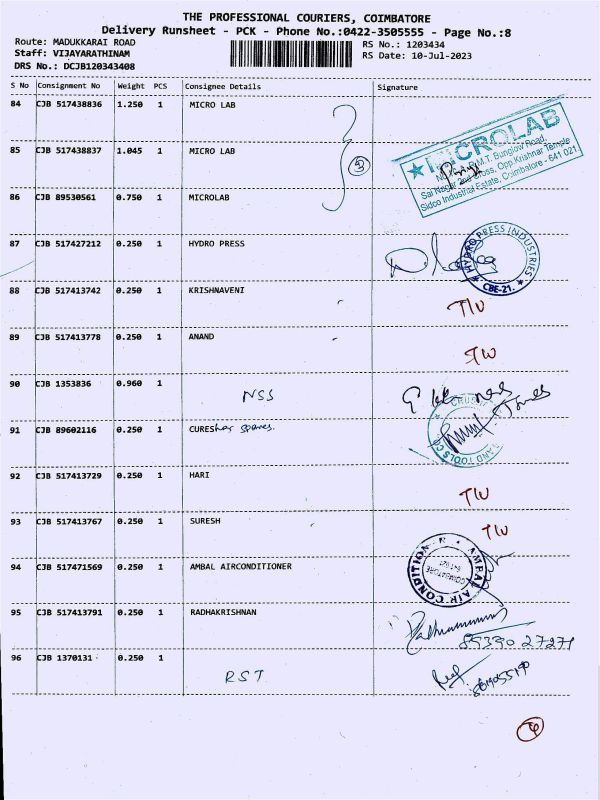 THE PROFESSIONAL COURIERS, COIMBATORE
Delivery Runsheet - PCK - Phone No.:0422-3505555 - Page No.:8
Route: MADUKKARAI ROAD RS No.: 1203434
Staff: VIJAYARATHINAM RS Date: 10-Jul-2023
DRS No.: DCJB120343408
S No Consignment No Weight PCS Consignee Details Signature
84 CJB 517438836 1.250 1 MICRO LAB
85 CJB 517438837 1.045 1 MICRO LAB
3
MICROLAB
Sai Nagar 2nd Cross, Opp.Krishnar Temple
Sidco Industrial Estate, Coimbatore - 641 021
86 CJB 89530561 0.750 1 MICROLAB
87 CJB 517427212 0.250 1 HYDRO PRESS
HYDRO PRESS INDUSTRIES
CBE-21.
88 CJB 517413742 0.250 1 KRISHNAVENI
89 CJB 517413778 0.250 1 ANAND
90 CJB 1353836 0.960 1 NSS
91 CJB 89602116 0.250 1 CURESher spares.
92 CJB 517413729 0.250 1 HARI
93 CJB 517413767 0.250 1 SURESH
94 CJB 517471569 0.250 1 AMBAL AIRCONDITIONER
AMBAL AIR CONDITIONER
COIMBATORE
641 021
95 CJB 517413791 0.250 1 RADHAKRISHNAN
89390 27271
96 CJB 1370131 0.250 1 RST